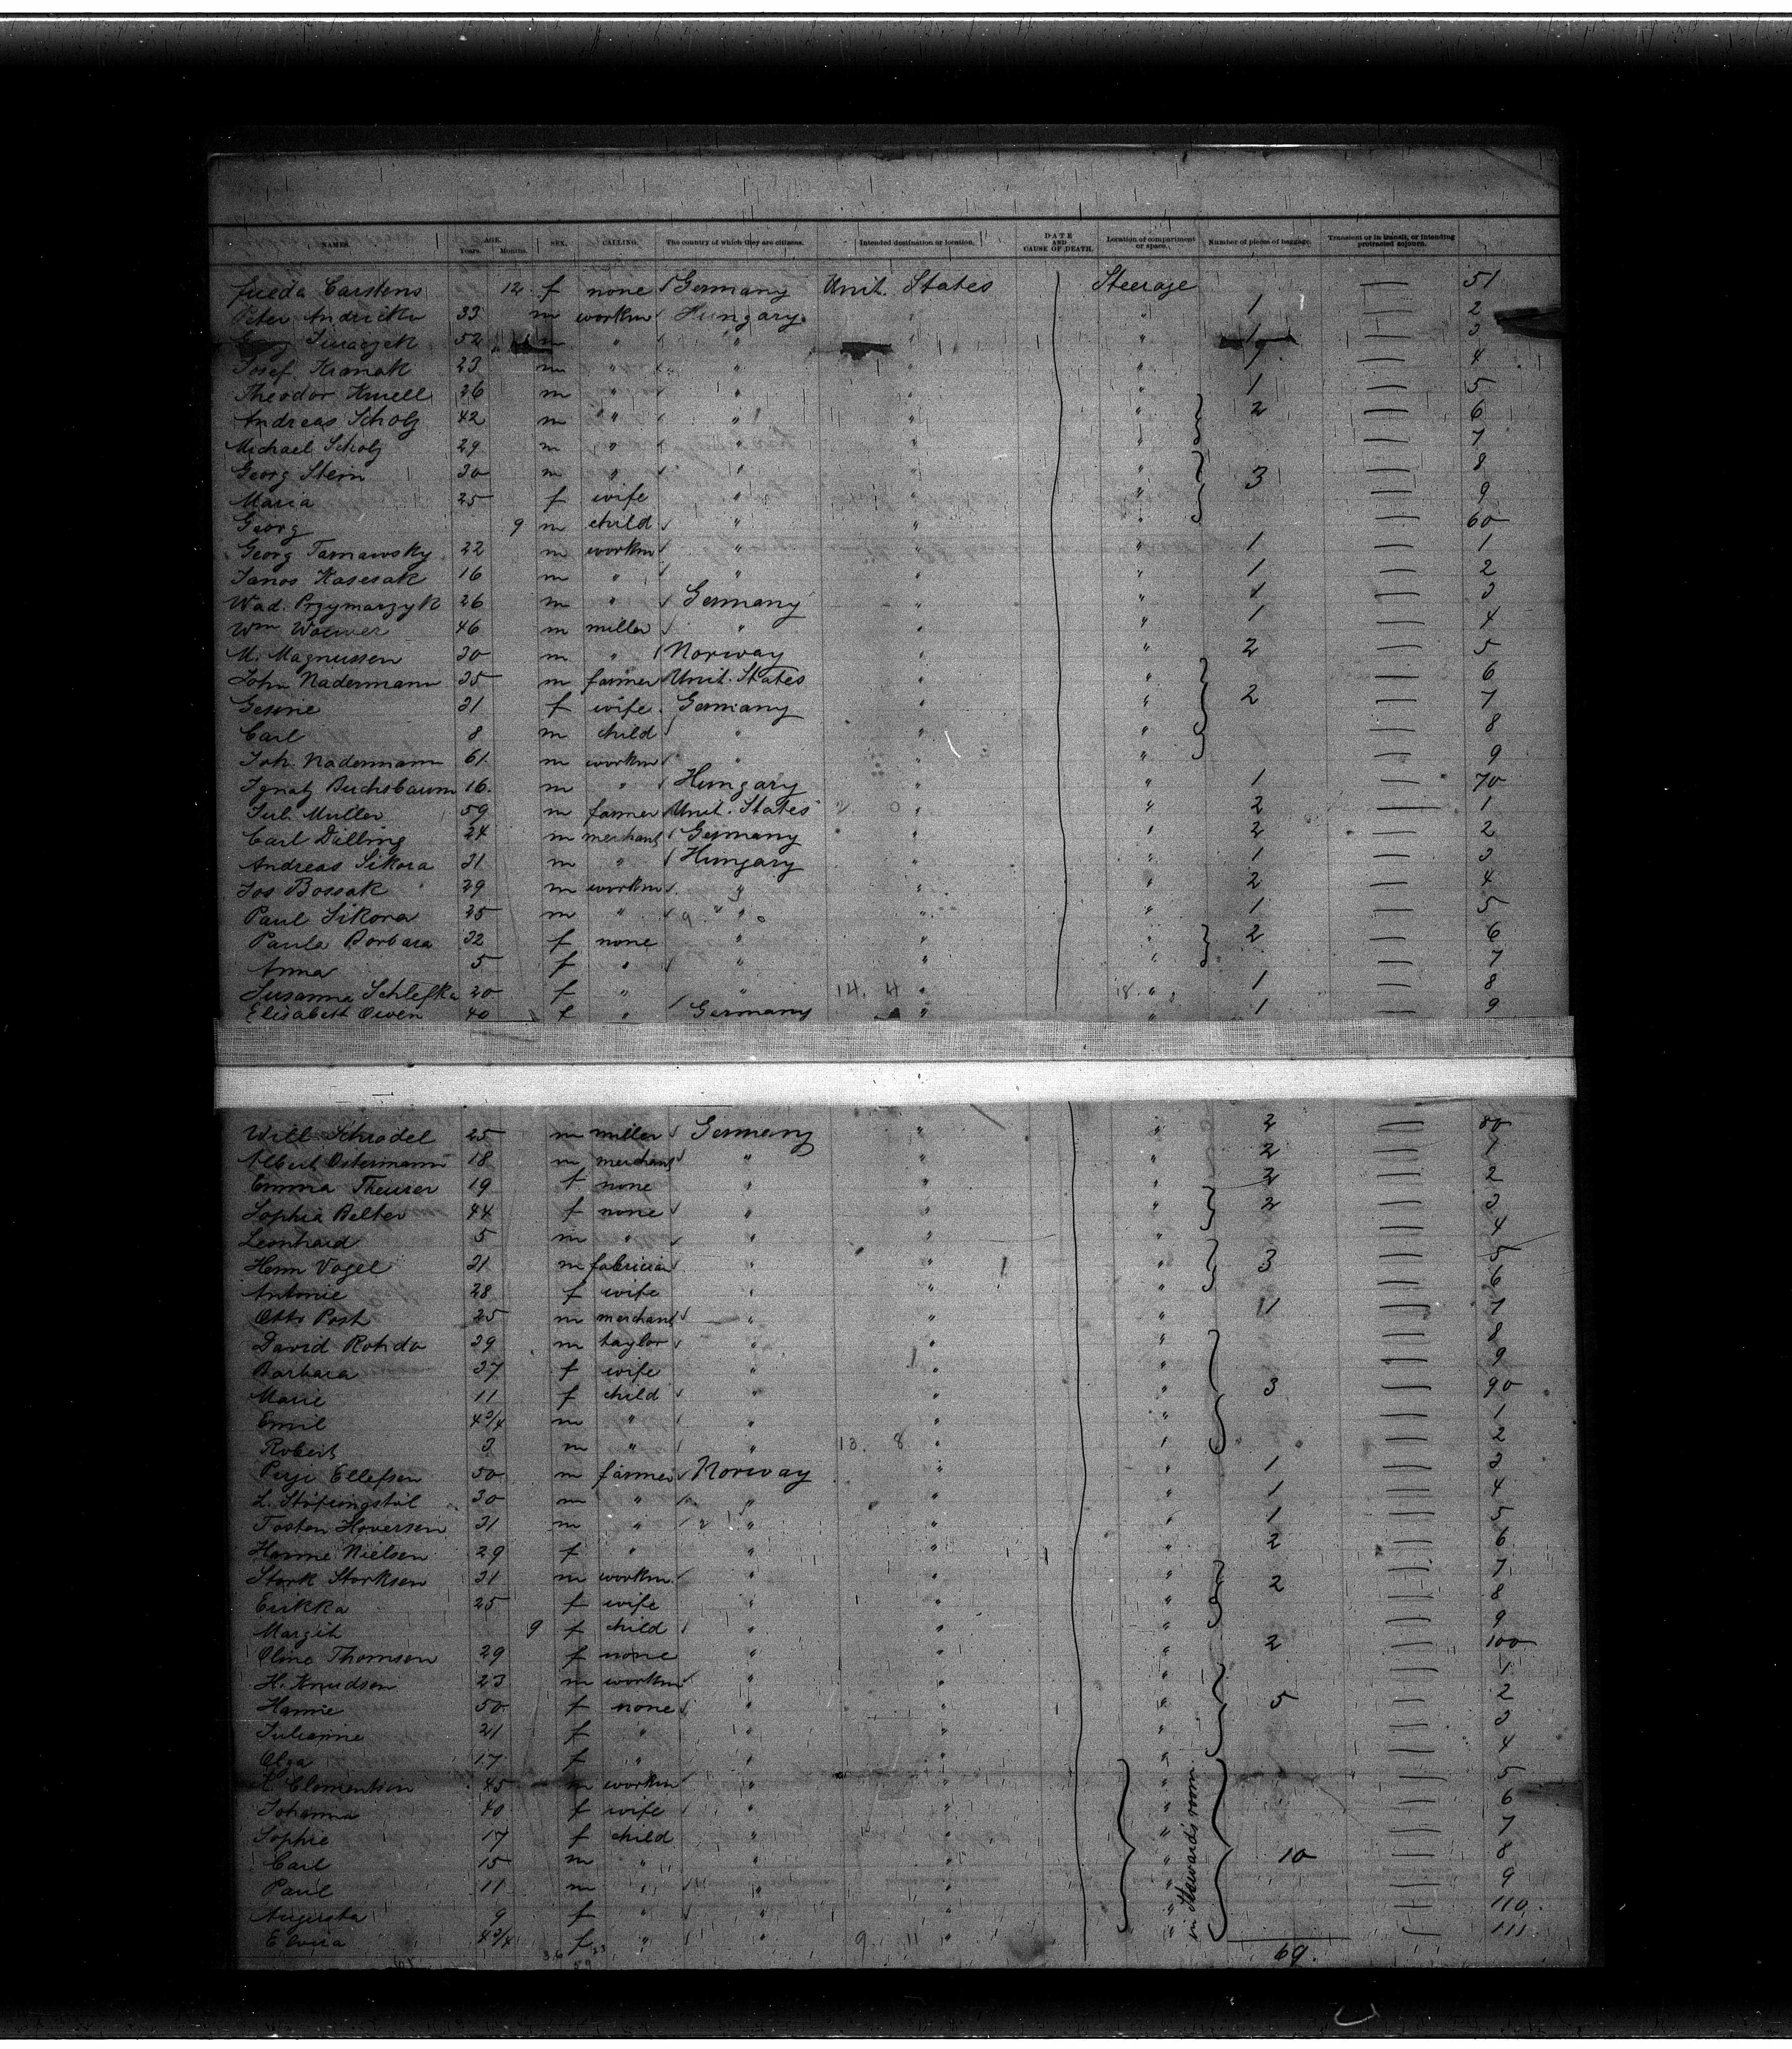 NAMES. AGE. Years. Months. SEX. CALLING. The country of which they are citizens. Intended destination or location. DATE AND CAUSE OF DEATH. Location of compartment or space. Number of pieces of baggage. Transient or in transit, or intending protracted sojourn.
Frieda Carstens 12 f none Germany Unit. States Steerage — 51
Peter 33 m workm Hungary " " 1 — 2
52 m " " " " 1 — 3
Josef 23 m " " " " 1 — 4
Theodor 26 m " " " " 1 — 5
Andreas Scholz 42 m " " " " 2 — 6
Michael Scholz 29 m " " " " — 7
Georg Stein 30 m " " " " 3 — 8
Maria 25 f wife " " " — 9
Georg 9 m child " " " — 60
Georg Tarnawsky 22 m workm " " " 1 — 1
Janos Kasesak 16 m " " " " 1 — 2
Wad. Przymarzyk 26 m " Germany " " 1 — 3
Wm Woewer 46 m miller " " " 1 — 4
M. Magnussen 30 m " Norway " " 2 — 5
John Nadermann 35 m farmer Unit. States " " — 6
Gesine 31 f wife Germany " " 2 — 7
Carl 8 m child " " " — 8
Joh. Nadermann 61 m workm " " " — 9
Ignatz Buchsbaum 16 m " Hungary " " 1 — 70
Jul. Muller 59 m farmer Unit. States 2 0 " " 2 — 1
Carl Dilling 24 m merchant Germany " " 2 — 2
Andreas Sikora 31 m " Hungary " " 1 — 3
Jos Bossak 29 m workm " " " 2 — 4
Paul Sikora 25 m " " " " 1 — 5
Paula Borbara 32 f none " " " 2 — 6
Anna 5 f " " " " — 7
Susanna Schlefka 20 f " " 14. 4 " 18. " 1 — 8
Elisabeth Owen 40 f " Germany " " 1 — 9
Will Schradel 25 m miller Germany " " 2 — 80
Albert Ostermann 18 m merchant " " " 2 — 1
Emma Theurer 19 f none " " " 2 — 2
Sophia Belter 44 f none " " " 2 — 3
Leonhard 5 m " " " " — 4
Herm Vogel 31 m " " " 3 — 5
Antonie 28 f wife " " " — 6
Otto Post 25 m merchant " " " 1 — 7
David Rohde 29 m taylor " " " — 8
Barbara 37 f wife " " " — 9
Marie 11 f child " " " 3 — 90
Emil 4 3/4 m " " " " — 1
Robert 3 m " " 13. 8 " " — 2
Perji Ellefsen 50 m farmer Norway " " 1 — 3
30 m " " " " 1 — 4
Tosten Hoversen 31 m " " " " 1 — 5
Hanne Nielsen 29 f " " " " 2 — 6
Stork Storksen 31 m workm " " " 2 — 7
Erikka 25 f wife " " " — 8
Margith 9 f child " " " — 9
Oline Thomson 29 f none " " " 2 — 100
H. Knudsen 23 m workm " " " — 1
Hanne 50 f none " " " 5 — 2
Julianne 21 f " " " " — 3
Olga 17 f " " " " — 4
K Clementsen 45 m workm " " " — 5
Johanna 40 f wife " " " — 6
Sophie 17 f child " " " — 7
Carl 15 m " " " " in Stewards room 10 — 8
Paul 11 m " " " " — 9
Augusta 9 f " " " " — 110
Elvira 4 3/4 f " " 9. 11 " " — 111
69.